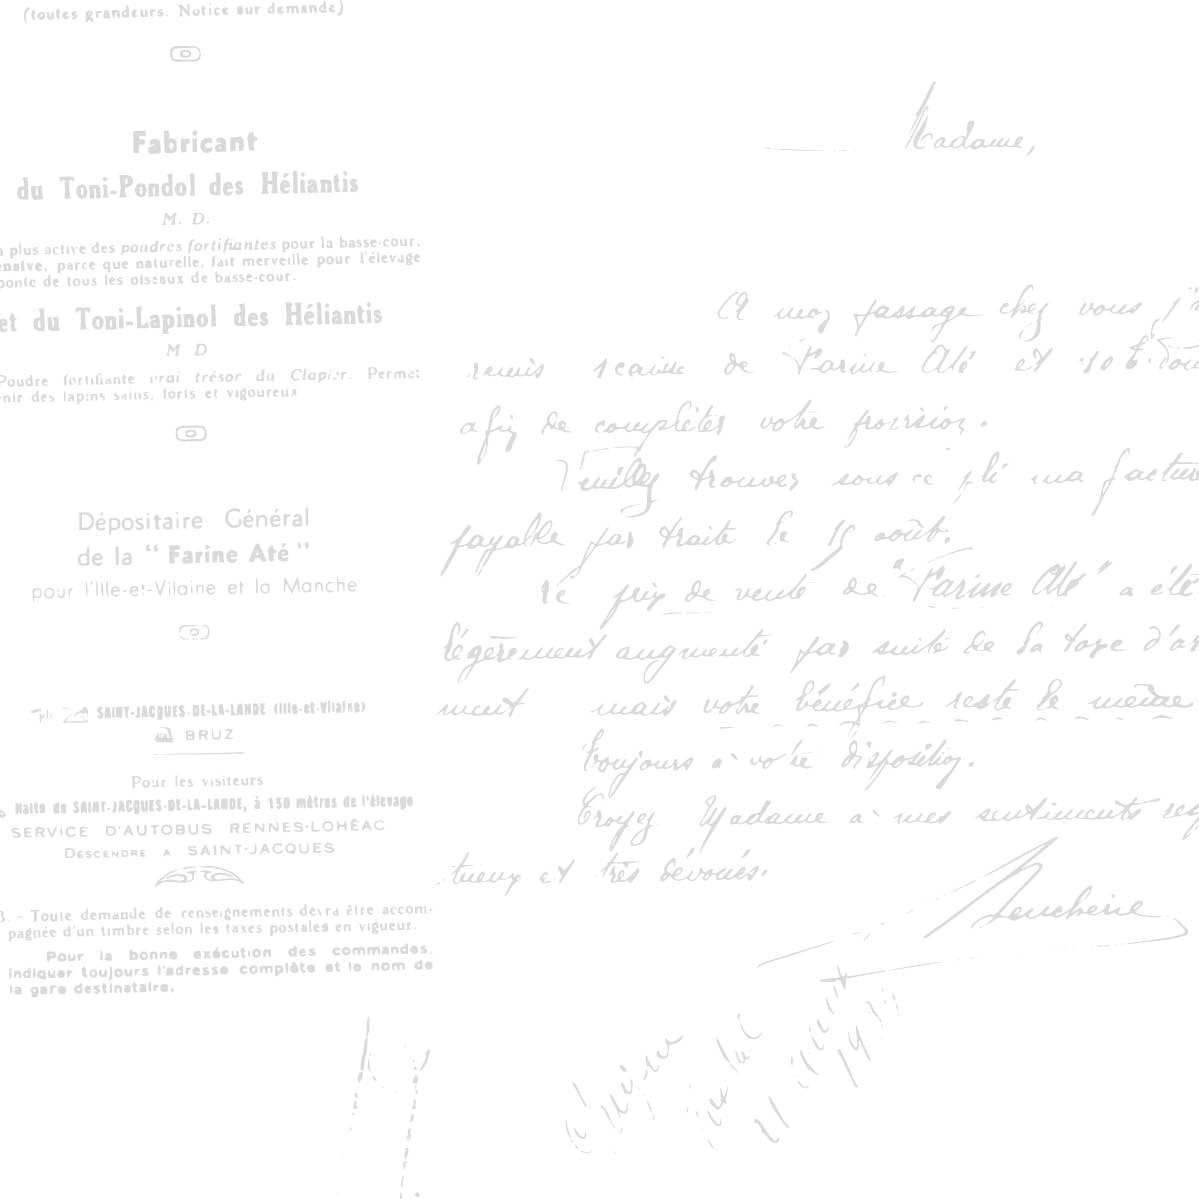 (toutes grandeurs. Notice sur demande)
Fabricant
du Toni-Pondol des Héliantis
M. D.
plus active des poudres fortifiantes pour la basse-cour,
parce que naturelle, fait merveille pour l'élevage
ponte de tous les oiseaux de basse-cour.
et du Toni-Lapinol des Héliantis
M D
Poudre fortifiante vrai trésor du Clapier. Permet
des lapins sains, forts et vigoureux
Dépositaire Général
de la "Farine Até"
pour l'Ille-et-Vilaine et la Manche
SAINT-JACQUES-DE-LA-LANDE (Ille-et-Vilaine)
BRUZ
Pour les visiteurs
Halte de SAINT-JACQUES-DE-LA-LANDE, à 150 mètres de l'élevage
SERVICE D'AUTOBUS RENNES-LOHÉAC
DESCENDRE A SAINT-JACQUES
B. - Toute demande de renseignements devra être accom-
pagnée d'un timbre selon les taxes postales en vigueur.
Pour la bonne exécution des commandes,
indiquer toujours l'adresse complète et le nom de
la gare destinataire.
Madame,
A mon passage chez vous j'
remis 1 caisse de Farine Até et 10
afin de compléter votre provision.
Veuillez trouver sous ce pli ma facture
payable par traite le 15 août.
Le prix de vente de "Farine Até" a été
légèrement augmenté par suite de la taxe
ment mais votre bénéfice reste le même
Toujours à votre disposition.
Croyez Madame à mes sentiments
tueux et très dévoués.
21